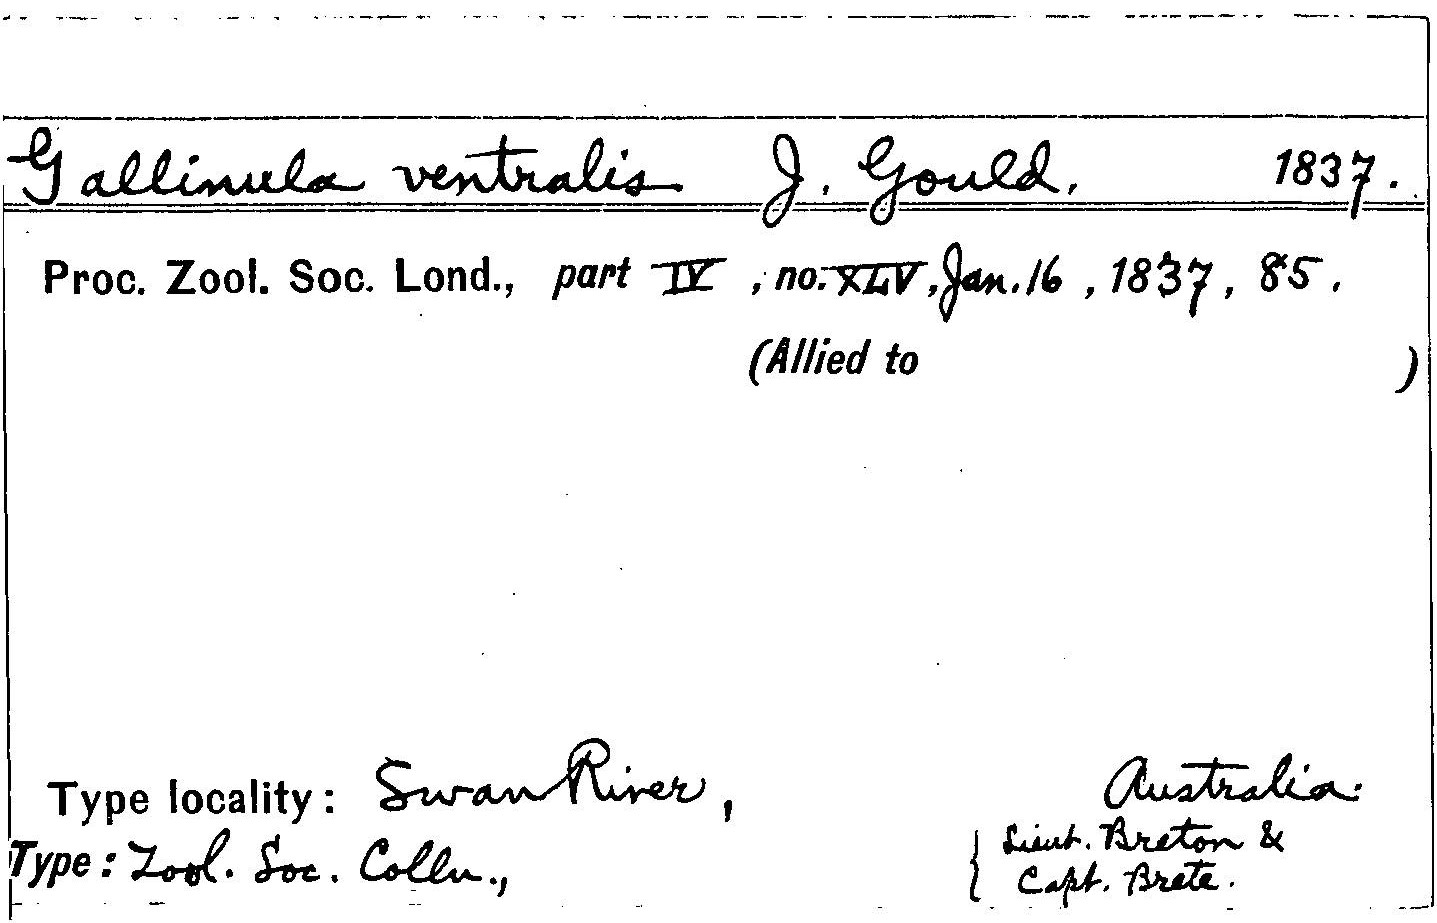 Gallinula ventralis J. Gould. 1837.
Proc. Zool. Soc. Lond., part IV, no. XLV, Jan. 16, 1837, 85.
(Allied to )
Type locality: Swan River, Australia.
Type: Zool. Soc. Colln., { Lieut. Breton &
Capt. Brete.